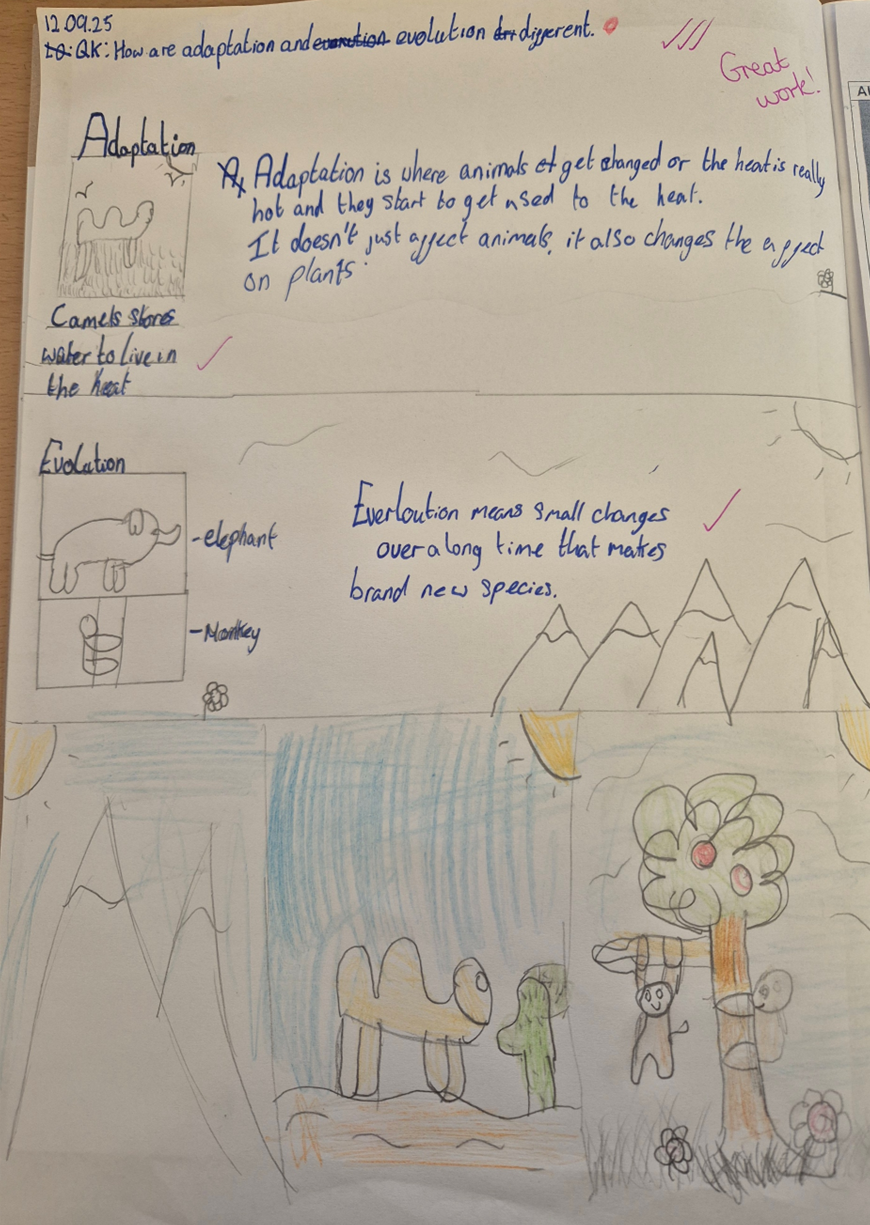 12.09.25
LO: QK: How are adaptation and evolution different.
Great
work!
Adaptation
Adaptation is where animals get changed or the heat is really
hot and they start to get used to the heat.
It doesn't just affect animals, it also changes the affect
on plants.
Camels stores
water to live in
the heat
Evolution
-elephant
-Monkey
Everloution means small changes
over a long time that makes
brand new species.